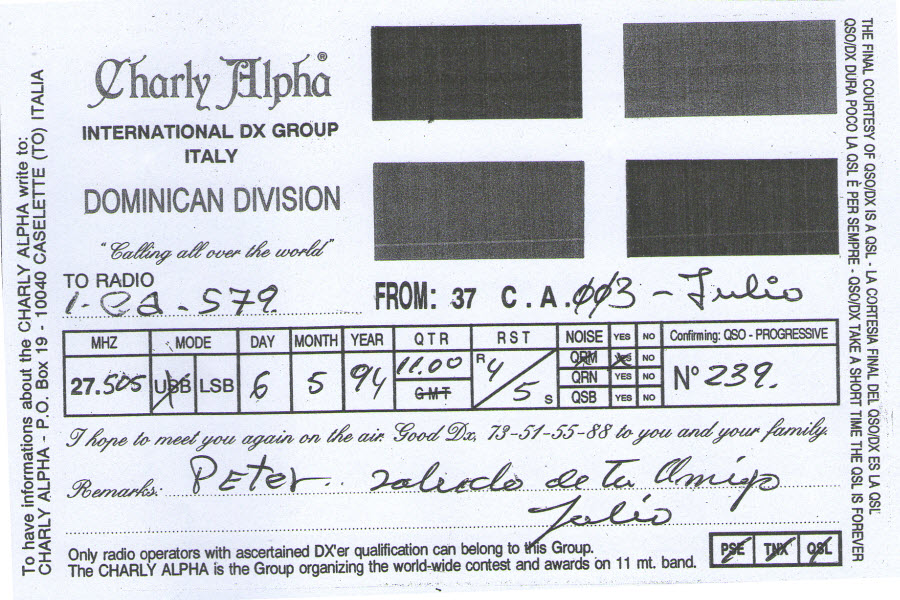 To have informations about the CHARLY ALPHA write to:
CHARLY ALPHA - P.O. Box 19 - 10040 CASELETTE (TO) ITALIA
Charly Alpha®
INTERNATIONAL DX GROUP
ITALY
DOMINICAN DIVISION
"Calling all over the world"
TO RADIO
1-CA-579.
FROM: 37 C.A.003 - Julio
MHZ MODE DAY MONTH YEAR QTR RST NOISE YES NO Confirming: QSO - PROGRESSIVE
27.505 USB LSB 6 5 94 11.00 GMT R 4 5 S N° 239.
QRM YES NO
QRN YES NO
QSB YES NO
I hope to meet you again on the air. Good Dx, 73-51-55-88 to you and your family.
Remarks: Peter.. saludo de tu Amigo
Julio
Only radio operators with ascertained DX'er qualification can belong to this Group.
The CHARLY ALPHA is the Group organizing the world-wide contest and awards on 11 mt. band.
PSE TNX QSL
THE FINAL COURTESY OF QSO/DX IS A QSL - LA CORTESIA FINAL DEL QSO/DX ES LA QSL
QSO/DX DURA POCO LA QSL È PER SEMPRE - QSO/DX TAKE A SHORT TIME THE QSL IS FOREVER